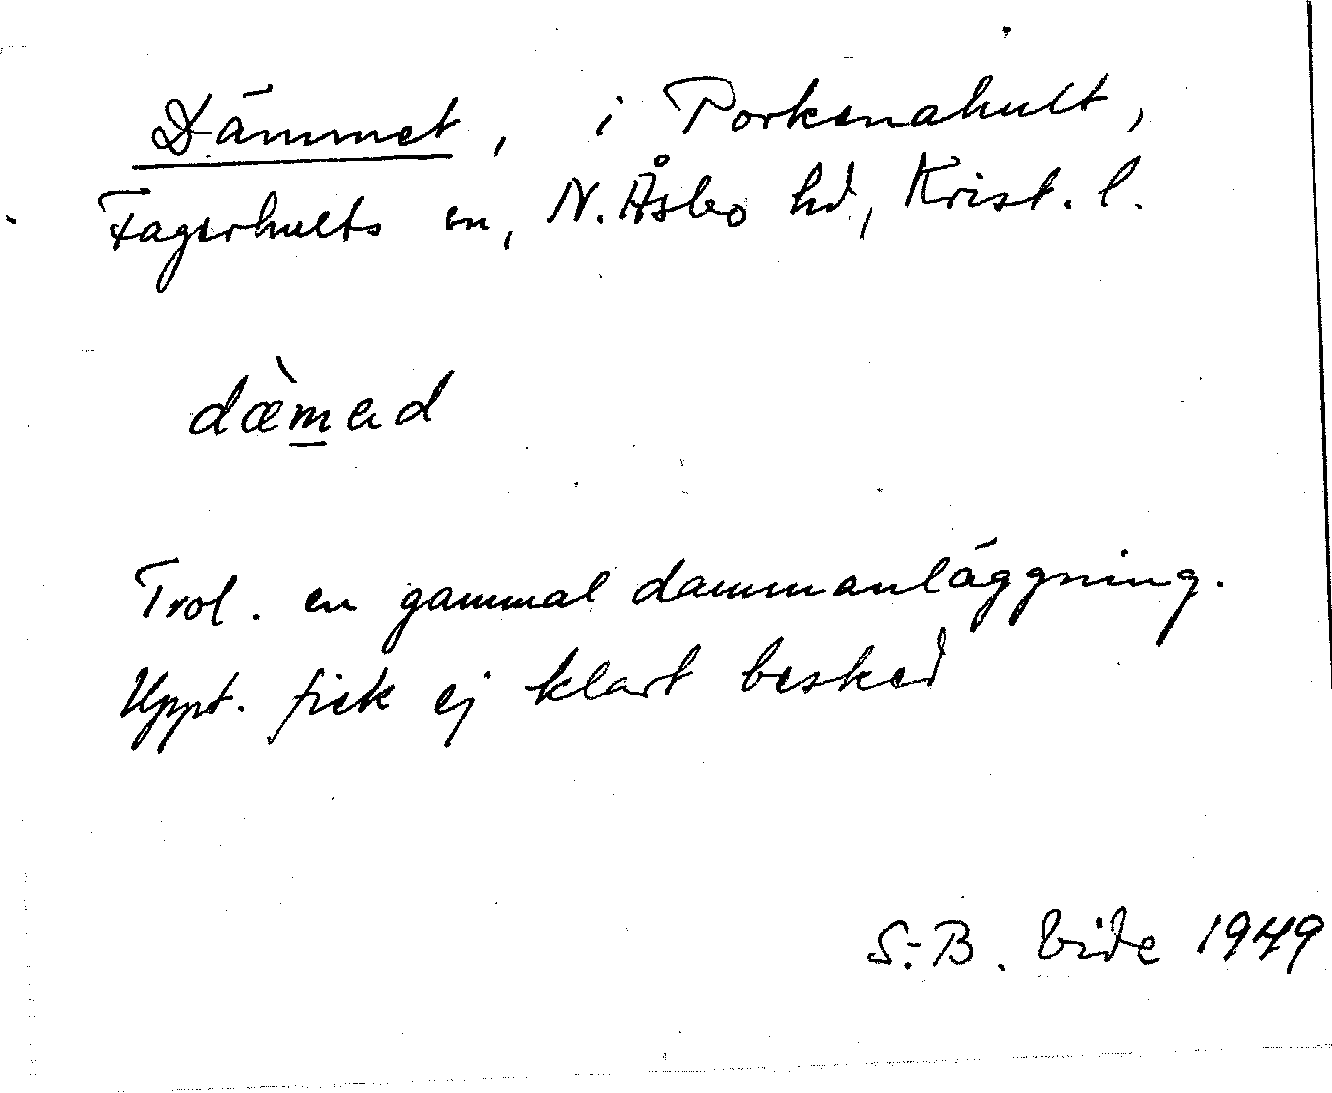 Dämmet, i Porkenahult,
Fagerhults sn, N. Åsbo hd, Krist. l.
dæ̀m̲ad
Trol. en gammal dammanläggning.
Uppt. fick ej klart besked
S.-B. Vide 1949